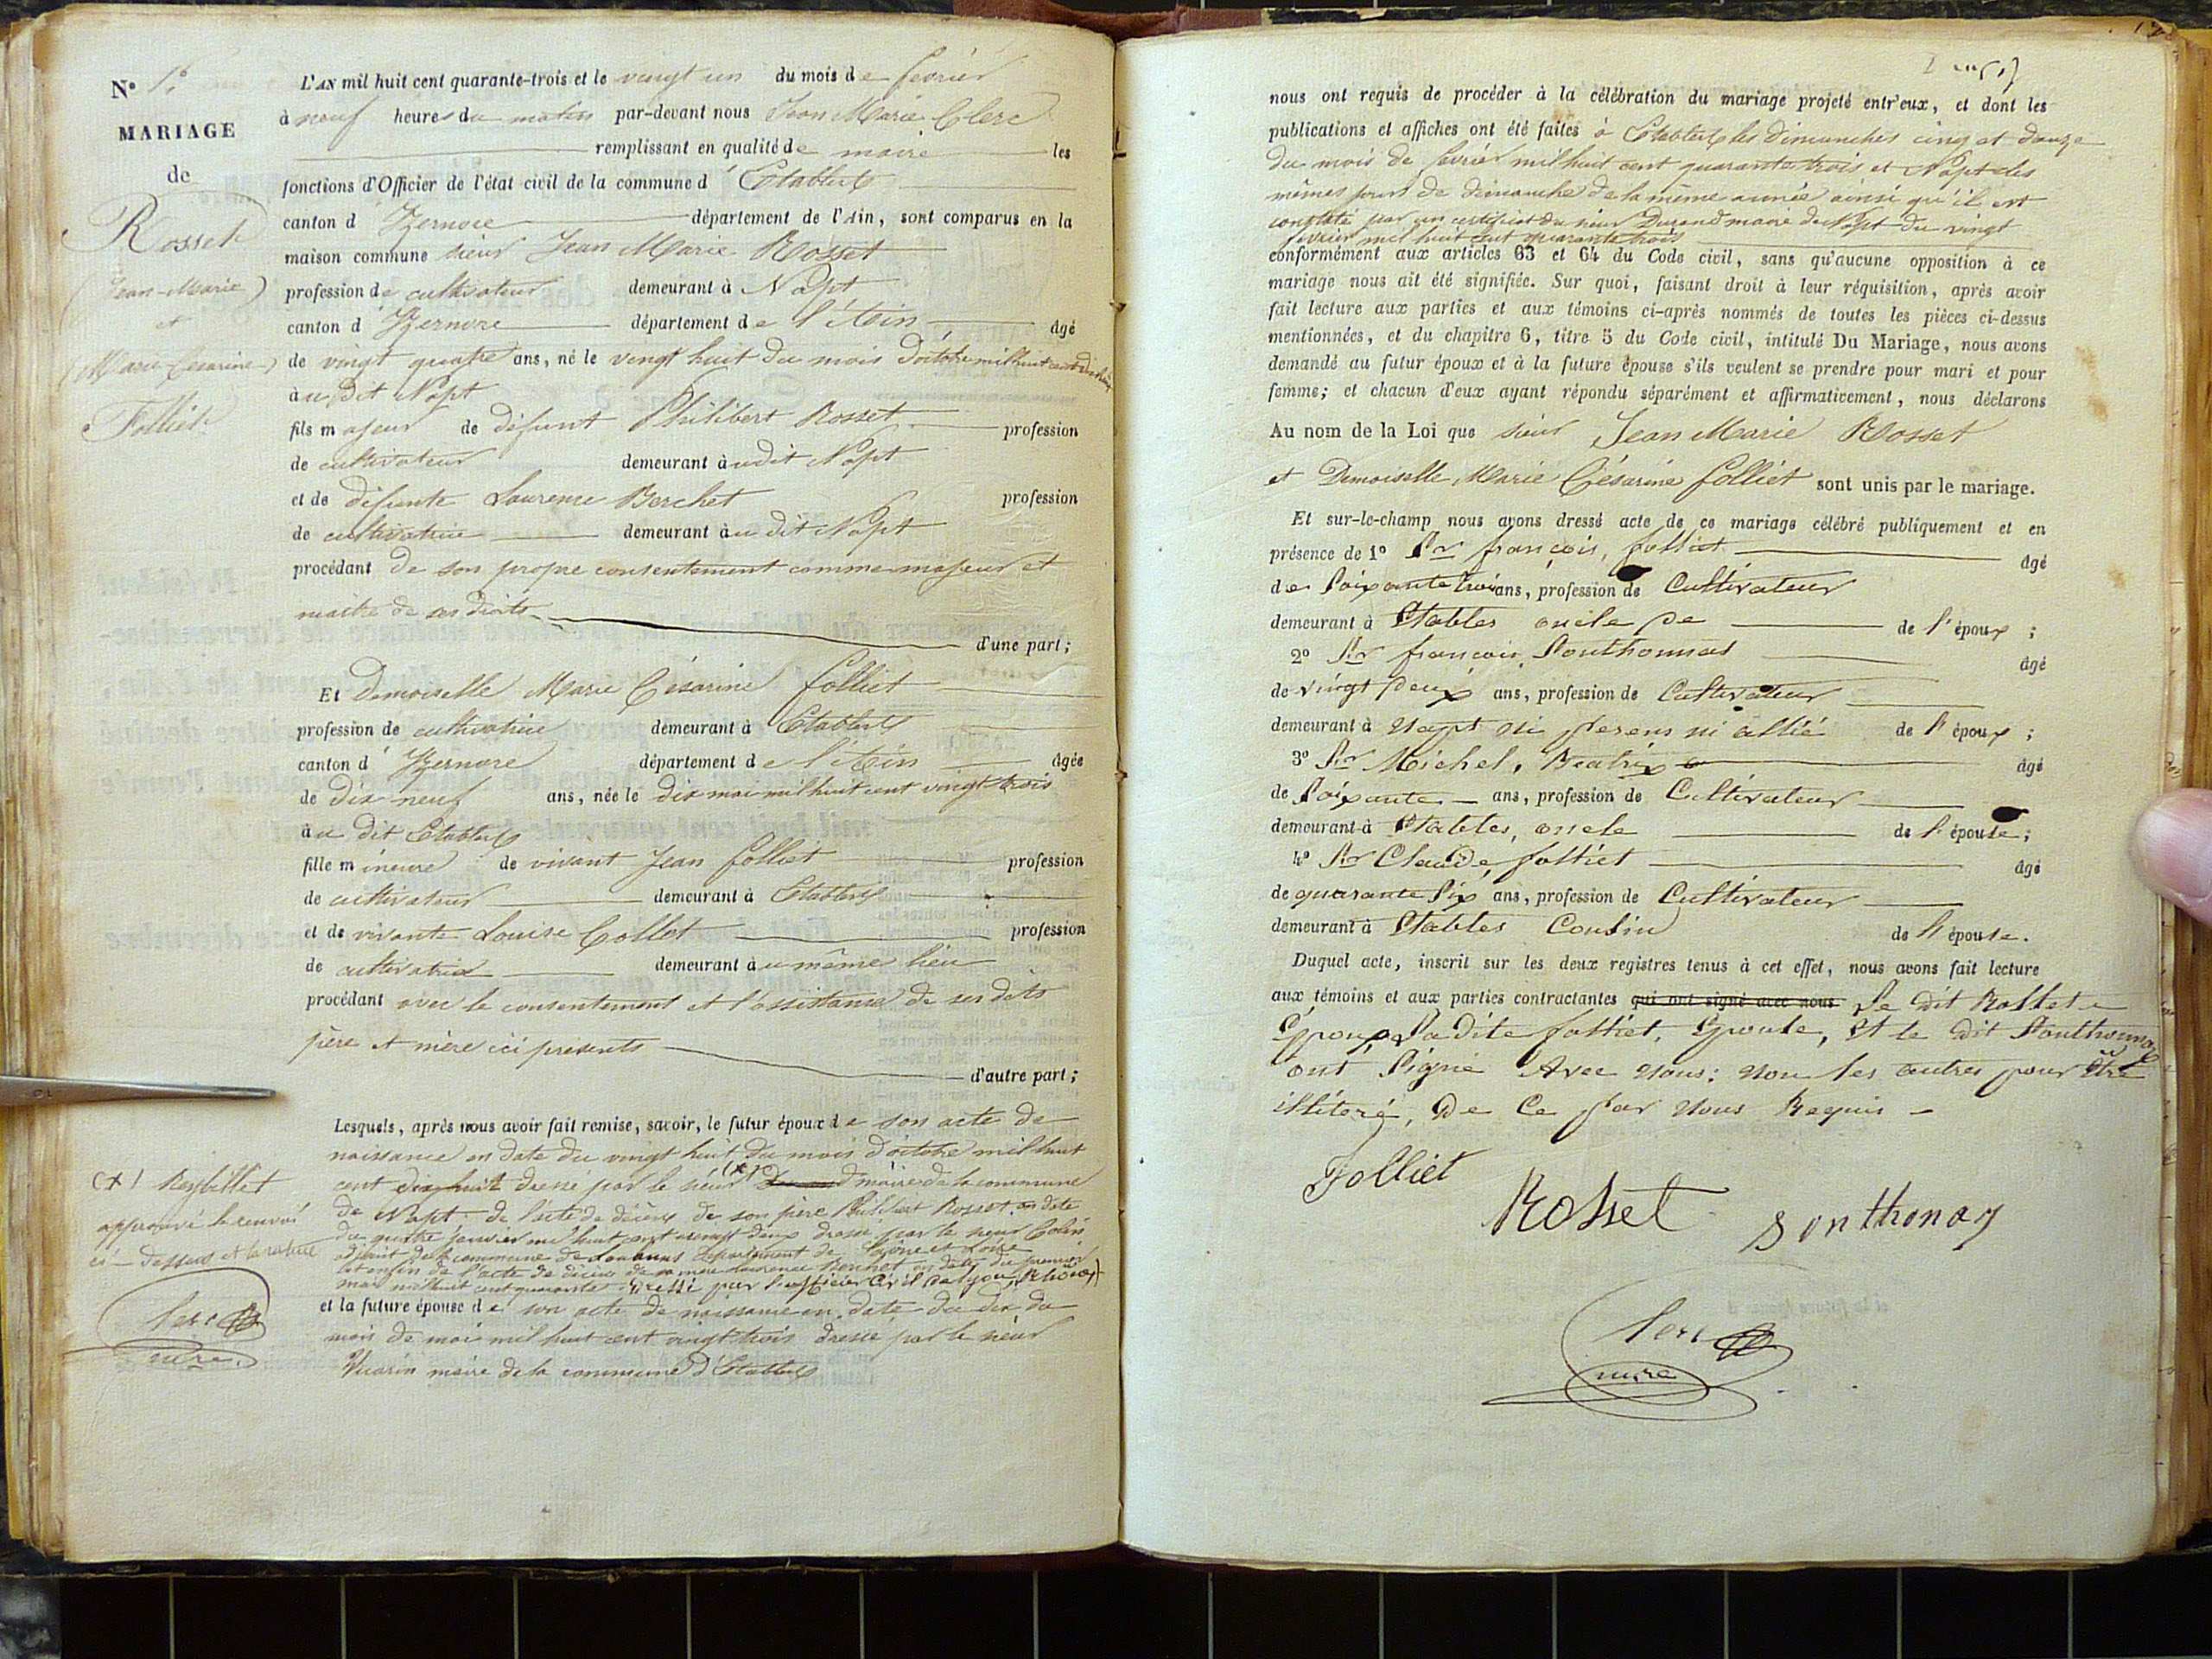 N° 1er
MARIAGE
de
Rosset
(Jean-Marie)
et
(Marie Césarine)
Folliet
L'AN mil huit cent quarante-trois et le vingt un du mois de fevrier
à neuf heures du matin par-devant nous Jean Marie Clerc
remplissant en qualité de maire les
fonctions d'Officier de l'état civil de la commune d'Etables
canton d'Izernore département de l'Ain, sont comparus en la
maison commune sieur Jean Marie Rosset
profession de cultivateur demeurant à Napt
canton d'Izernore département de l'Ain âgé
de vingt quatre ans, né le vingt huit du mois d'octobre mil huit cent dix huit
au dit Napt
fils majeur de défunt Philibert Rosset profession
de cultivateur demeurant audit Napt
et de défunte Laurence Berchet profession
de cultivatrice demeurant au dit Napt
procédant de son propre consentement comme majeur et
maitre de ses droits
d'une part;
Et Demoiselle Marie Césarine folliet
profession de cultivatrice demeurant à Etables
canton d'Izernore département de l'Ain âgée
de dix neuf ans, née le dix mai mil huit cent vingt trois
au dit Etables
fille mineure de vivant Jean folliet profession
de cultivateur demeurant à Etables
et de vivante Louise Collet profession
de cultivatrice demeurant au même lieu
procédant avec le consentement et l'assistance de ses dits
père et mère ici présents
d'autre part;
Lesquels, après nous avoir fait remise, savoir, le futur époux de son acte de
naissance en date du vingt huit du mois d'octobre mil huit
cent dix huit dressé par le sieur (x) maire de la commune
de Napt de l'acte de décès de son père Philibert Rosset en date
du quatre janvier mil huit cent vingt deux dressé par le sieur Colin
adjoint de la commune de Louhans département de Saône et Loire
et enfin de l'acte de décès de sa mère Laurence Berchet en date du premier
mai mil huit cent quarante dressé par l'officier Civil de Lyon, Rhône
et la future épouse de son acte de naissance en date du dix du
mois de mai mil huit cent vingt trois dressé par le sieur
Vuarin maire de la commune d'Etables
(x) Reybillet
approuvé le renvoi
ci-dessus et la rature
Clerc
mere
nous ont requis de procéder à la célébration du mariage projeté entr'eux, et dont les
publications et affiches ont été faites à Etables les dimanches cinq et douze
du mois de fevrier mil huit cent quarante trois et Napt les
mêmes jours de dimanche de la même année ainsi qu'il est
constaté par un certificat du sieur Durand maire de Napt du vingt
fevrier mil huit cent quarante trois
conformément aux articles 63 et 64 du Code civil, sans qu'aucune opposition à ce
mariage nous ait été signifiée. Sur quoi, faisant droit à leur réquisition, après avoir
fait lecture aux parties et aux témoins ci-après nommés de toutes les pièces ci-dessus
mentionnées, et du chapitre 6, titre 5 du Code civil, intitulé Du Mariage, nous avons
demandé au futur époux et à la future épouse s'ils veulent se prendre pour mari et pour
femme; et chacun d'eux ayant répondu séparément et affirmativement, nous déclarons
Au nom de la Loi que sieur Jean Marie Rosset
et Demoiselle Marie Césarine folliet sont unis par le mariage.
Et sur-le-champ nous avons dressé acte de ce mariage célébré publiquement et en
présence de 1° Sr françois, folliet âgé
de Soixante trois ans, profession de Cultivateur
demeurant à Etables oncle de de l'époux;
2° Sr françois, Sonthonnas âgé
de vingt deux ans, profession de Cultivateur
demeurant à Napt ni parens ni allié de l'époux;
3° Sr Michel, Béatrix âgé
de Soixante ans, profession de Cultivateur
demeurant à Etables, oncle de l'épouse;
4° Sr Claude, folliet âgé
de quarante Six ans, profession de Cultivateur
demeurant à Etables Cousin de l'épouse.
Duquel acte, inscrit sur les deux registres tenus à cet effet, nous avons fait lecture
aux témoins et aux parties contractantes qui ont signé avec nous Le dit Rosset
Epoux, La dite folliet, Epouse, et le dit Sonthonnas
ont Signé Avec nous: non les autres pour être
illiteré, De Ce par Nous Requis
Folliet
Rosset
Sonthonay
Clerc
mere